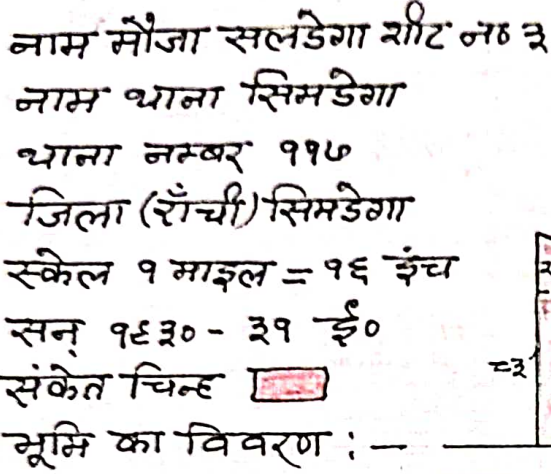 नाम मौजा सलडेगा शीट न० ३
नाम थाना सिमडेगा
थाना नम्बर ११७
जिला (राँची) सिमडेगा
स्केल १ माइल = १६ इंच
सन् १९३० - ३१ ई०
संकेत चिन्ह
भूमि का विवरण : —